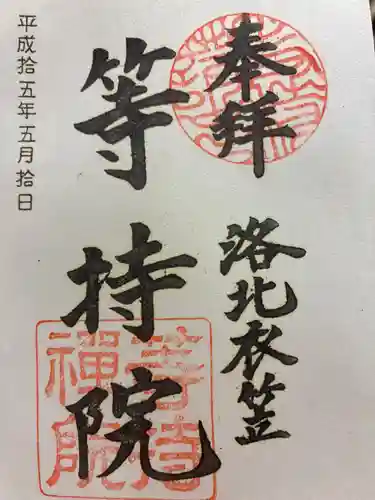 奉拝
洛北衣笠
等持院
平成拾五年五月拾日
等持
禅院